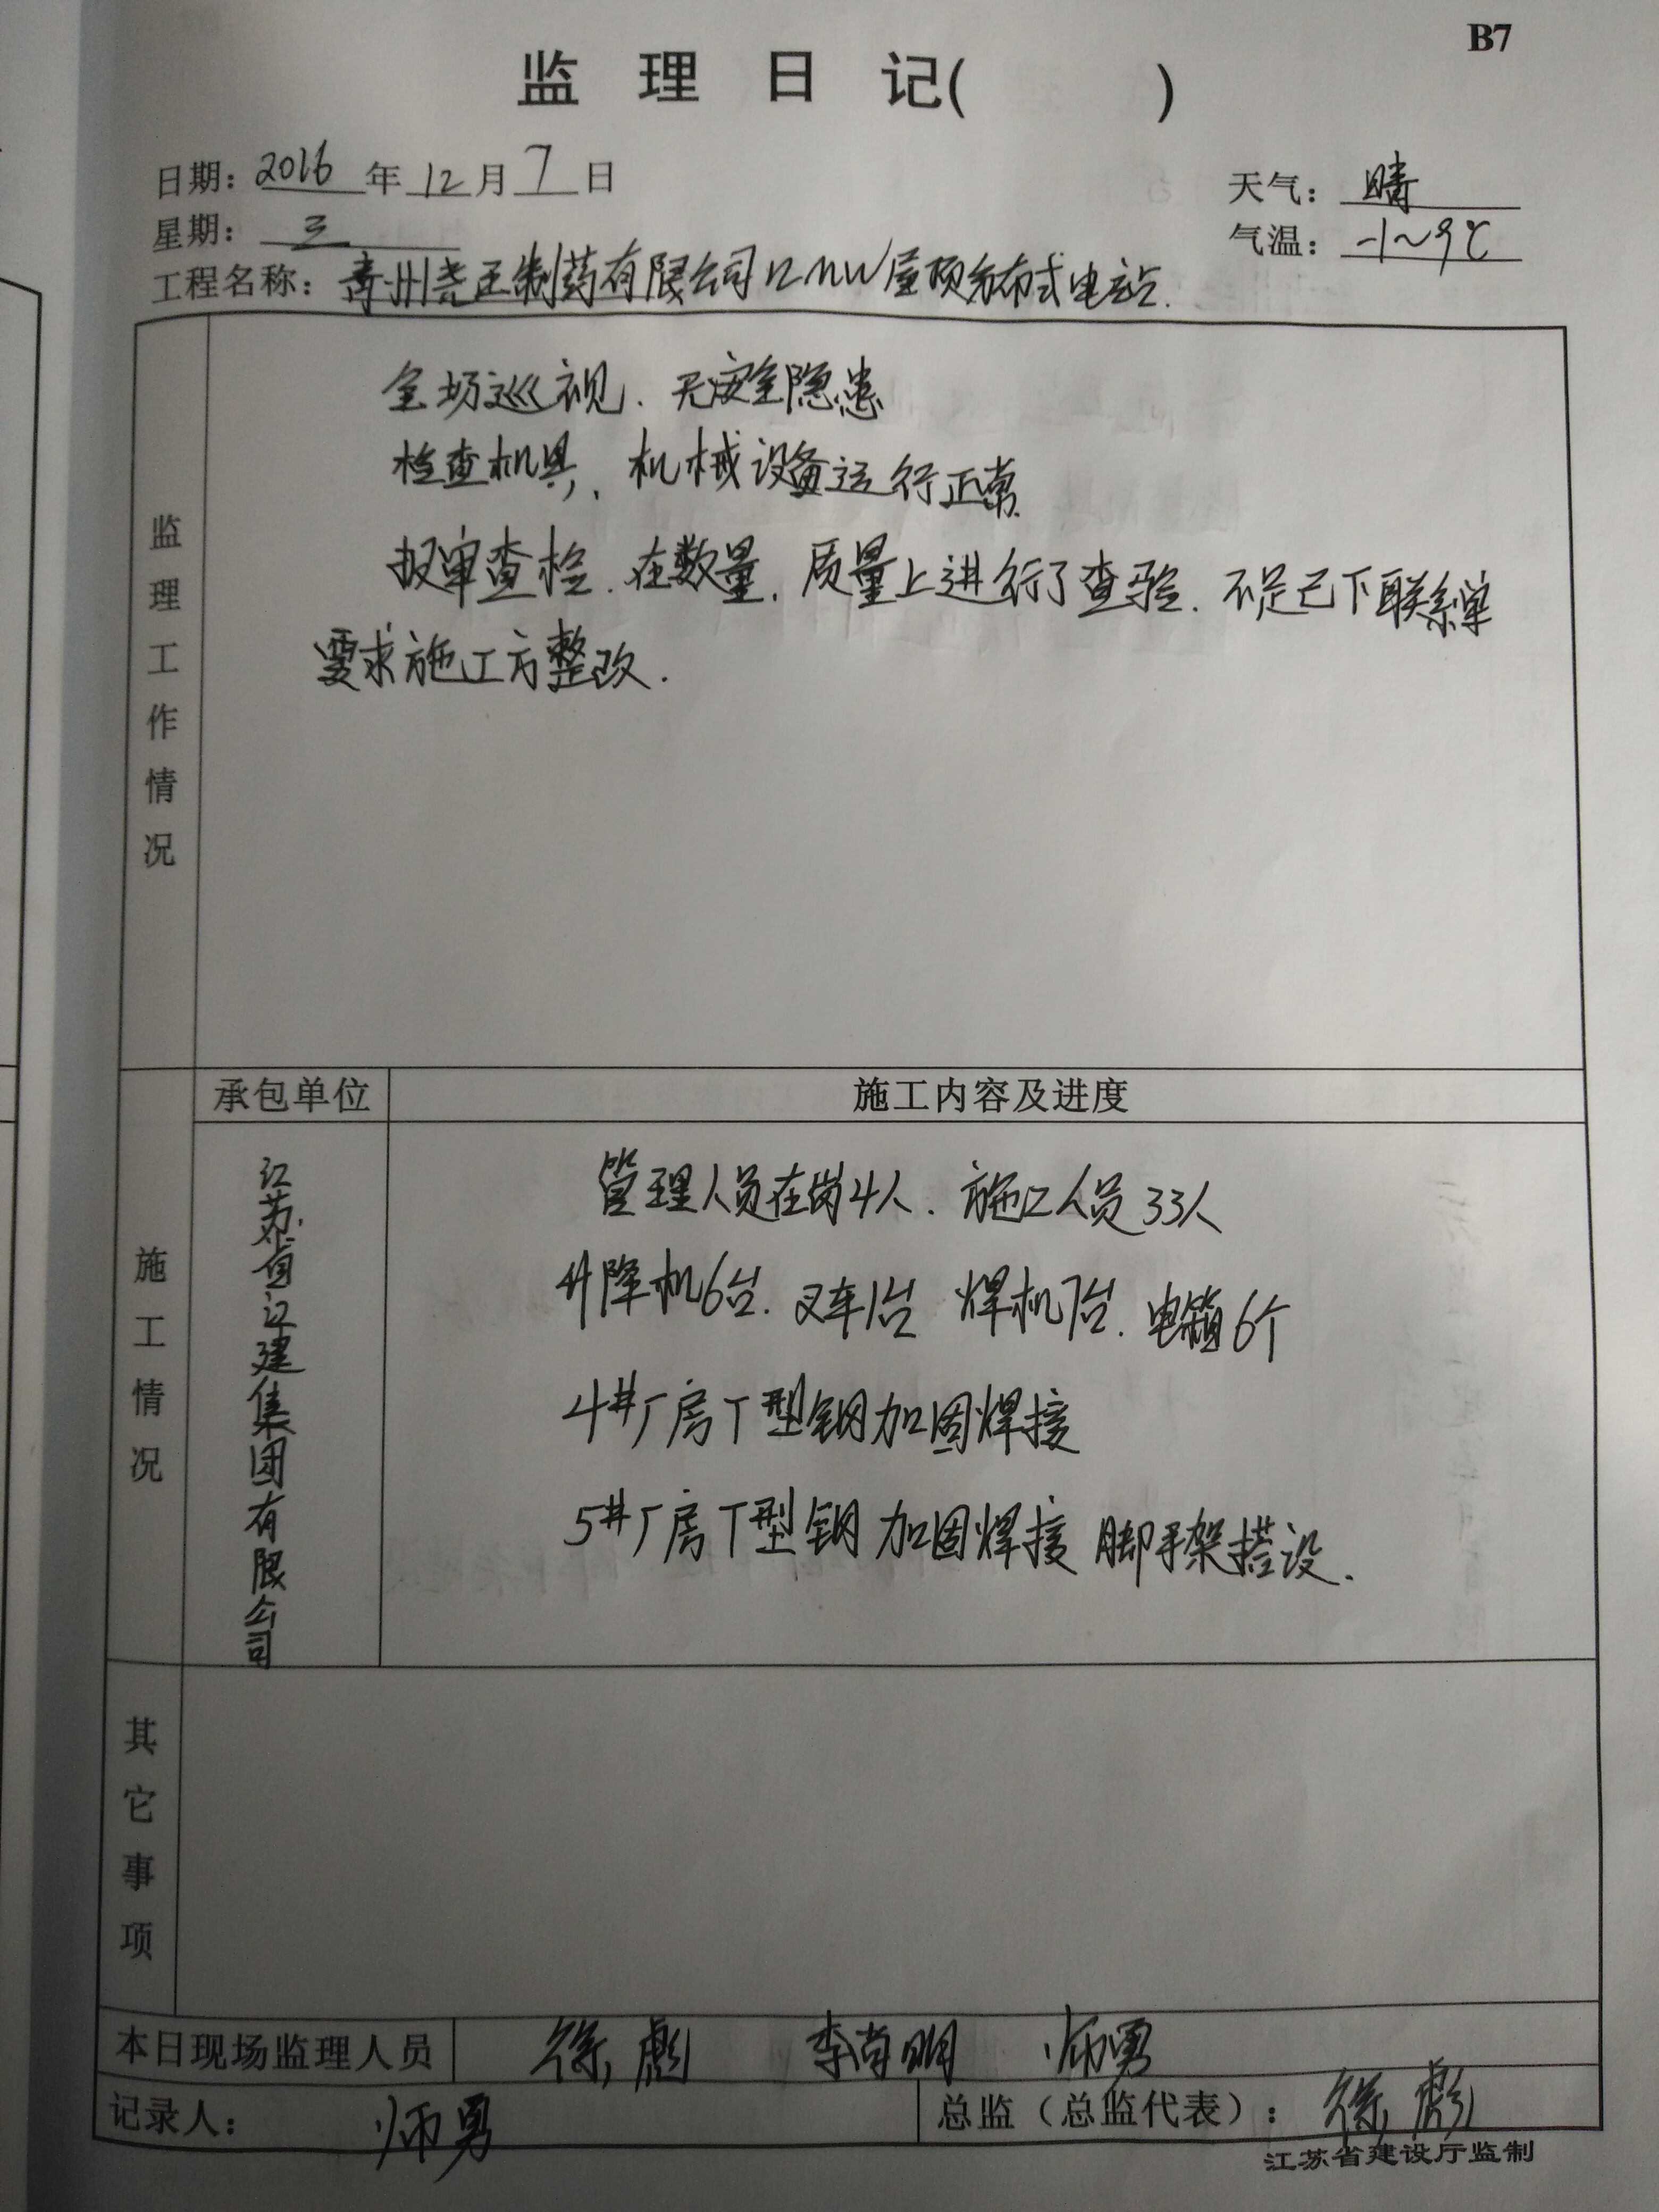 B7
监理日记( )
日期：2016年12月7日
天气：晴
星期：三
气温：-1~9℃
工程名称：青州尧王制药有限公司12MW屋顶分布式电站.
监理工作情况
全场巡视.无安全隐患
检查机具、机械设备运行正常.
报审查检.在数量,质量上进行了查验.不足已下联系单
要求施工方整改.
施工情况
承包单位
施工内容及进度
江苏省江建集团有限公司
管理人员在岗4人.施工人员33人
升降机6台.叉车1台 焊机7台.电箱6个
4#厂房T型钢加固焊接
5#厂房T型钢加固焊接 脚手架搭设.
其它事项
本日现场监理人员 徐彪 李尚明 师勇
记录人：师勇
总监（总监代表）：徐彪
江苏省建设厅监制